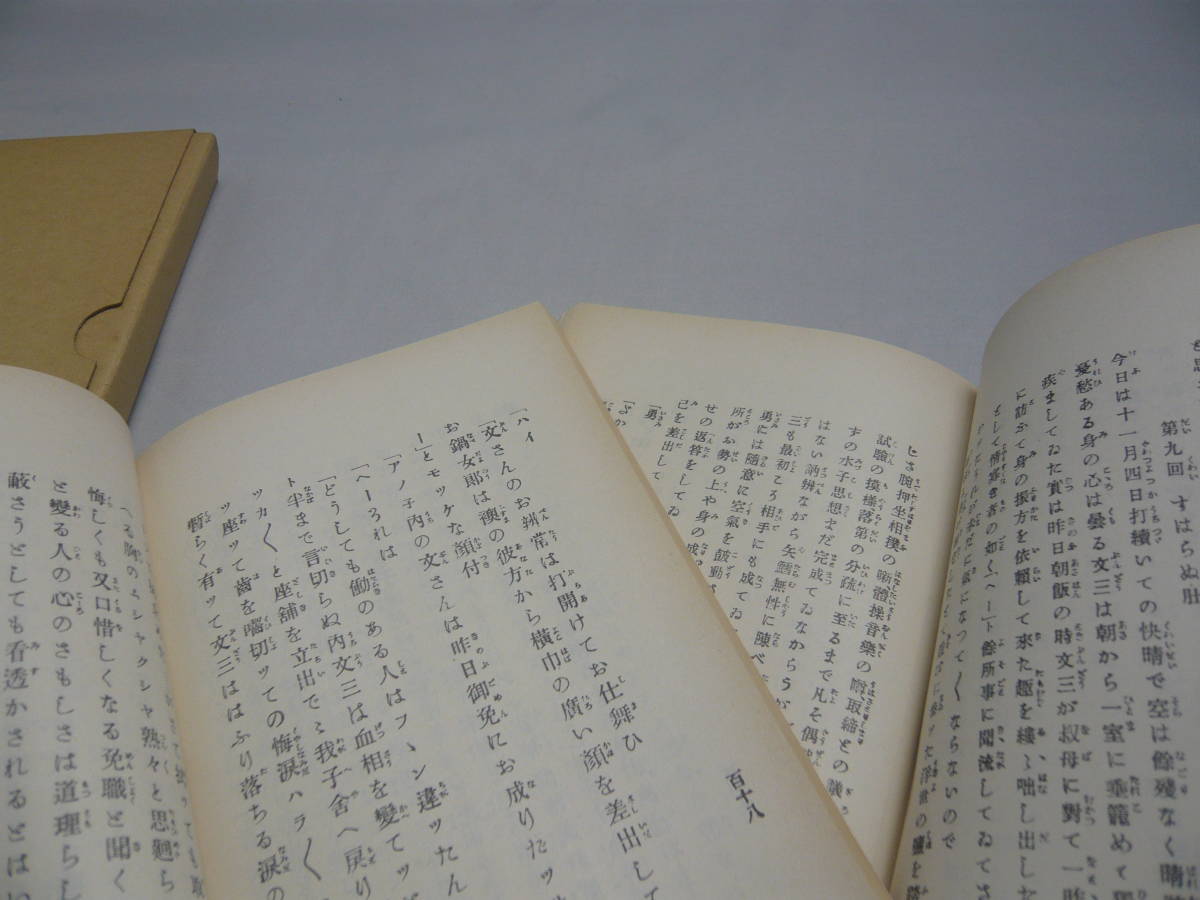 第九回 すはらぬ肚
今日は十一月四日打續いての快晴で空は餘殘なく晴
憂愁ある身の心は曇る文三は朝から一室に垂籠めて
疾ましてゐた實は昨日朝飯の時文三が叔母に對て一昨
に訪ふて身の振方を依頼して來た趣を縷〻咄し出した
そして情寡き者の如くヘー」ト餘所事に聞流してゐてさ
ヒさ腕押坐相撲の噺體操音樂の噂取締との議
試驗の摸樣落第の分疏に至るまで凡そ偶
才の水子思想まだ完成てゐなからうが
はない訥辨ながら矢鱈無性に陳べ
三も最初こそ相手にも成てゐ
勇には隨意に空氣を鼓動
所がお勢の上や身の成
せの返答をしてゐ
己を差出して
「勇
百十八
「ハイ
「文さんのお辨當は打開けてお仕舞ひ
お鍋女郎は襖の彼方から横巾の廣い顏を差出して
ー」とモッケな顏付
「アノ子内の文さんは昨日御免にお成りだッ
「へーそれは
「どうしても働のある人はフヽン違ッたん
ト半まで言切らぬ内文三は血相を變てッ
ッカ〱と座舖を立出でゝ我子舍へ戻り
ッ座ッて齒を噛切ッての悔涙ハラ〱
暫らく有ッて文三ははふり落ちる涙の
悔しくも又口惜しくなる免職と聞く
と變る人の心のさもしさは道理らし
蔽さうとしても看透かされるとはい